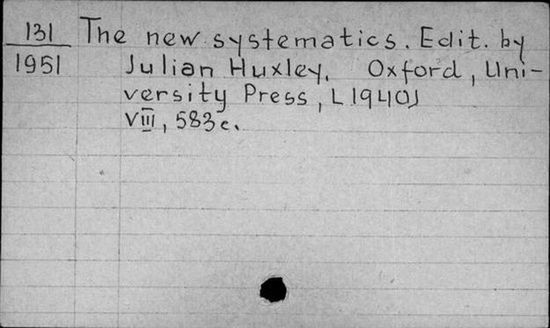 131 The new systematics. Edit. by
1951 Julian Huxley. Oxford, Uni-
versity Press, [1940]
VIII, 583 c.